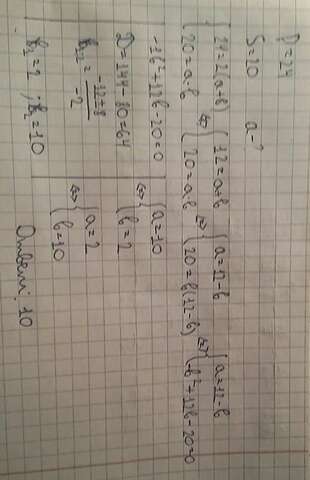 P=24
S=20 a-?
{24=2(a+b) 20=a·b ⇔ {12=a+b 20=a·b ⇔ {a=12-b 20=b(12-b) ⇔ {a=12-b -b²+12b-20=0
-1b²+12b-20=0
D=144-80=64
b₁,₂=(-12±8)/-2
b₁=2; b₂=10
⇔ {a=10 b=2
⇔ {a=2 b=10
Ответ: 10